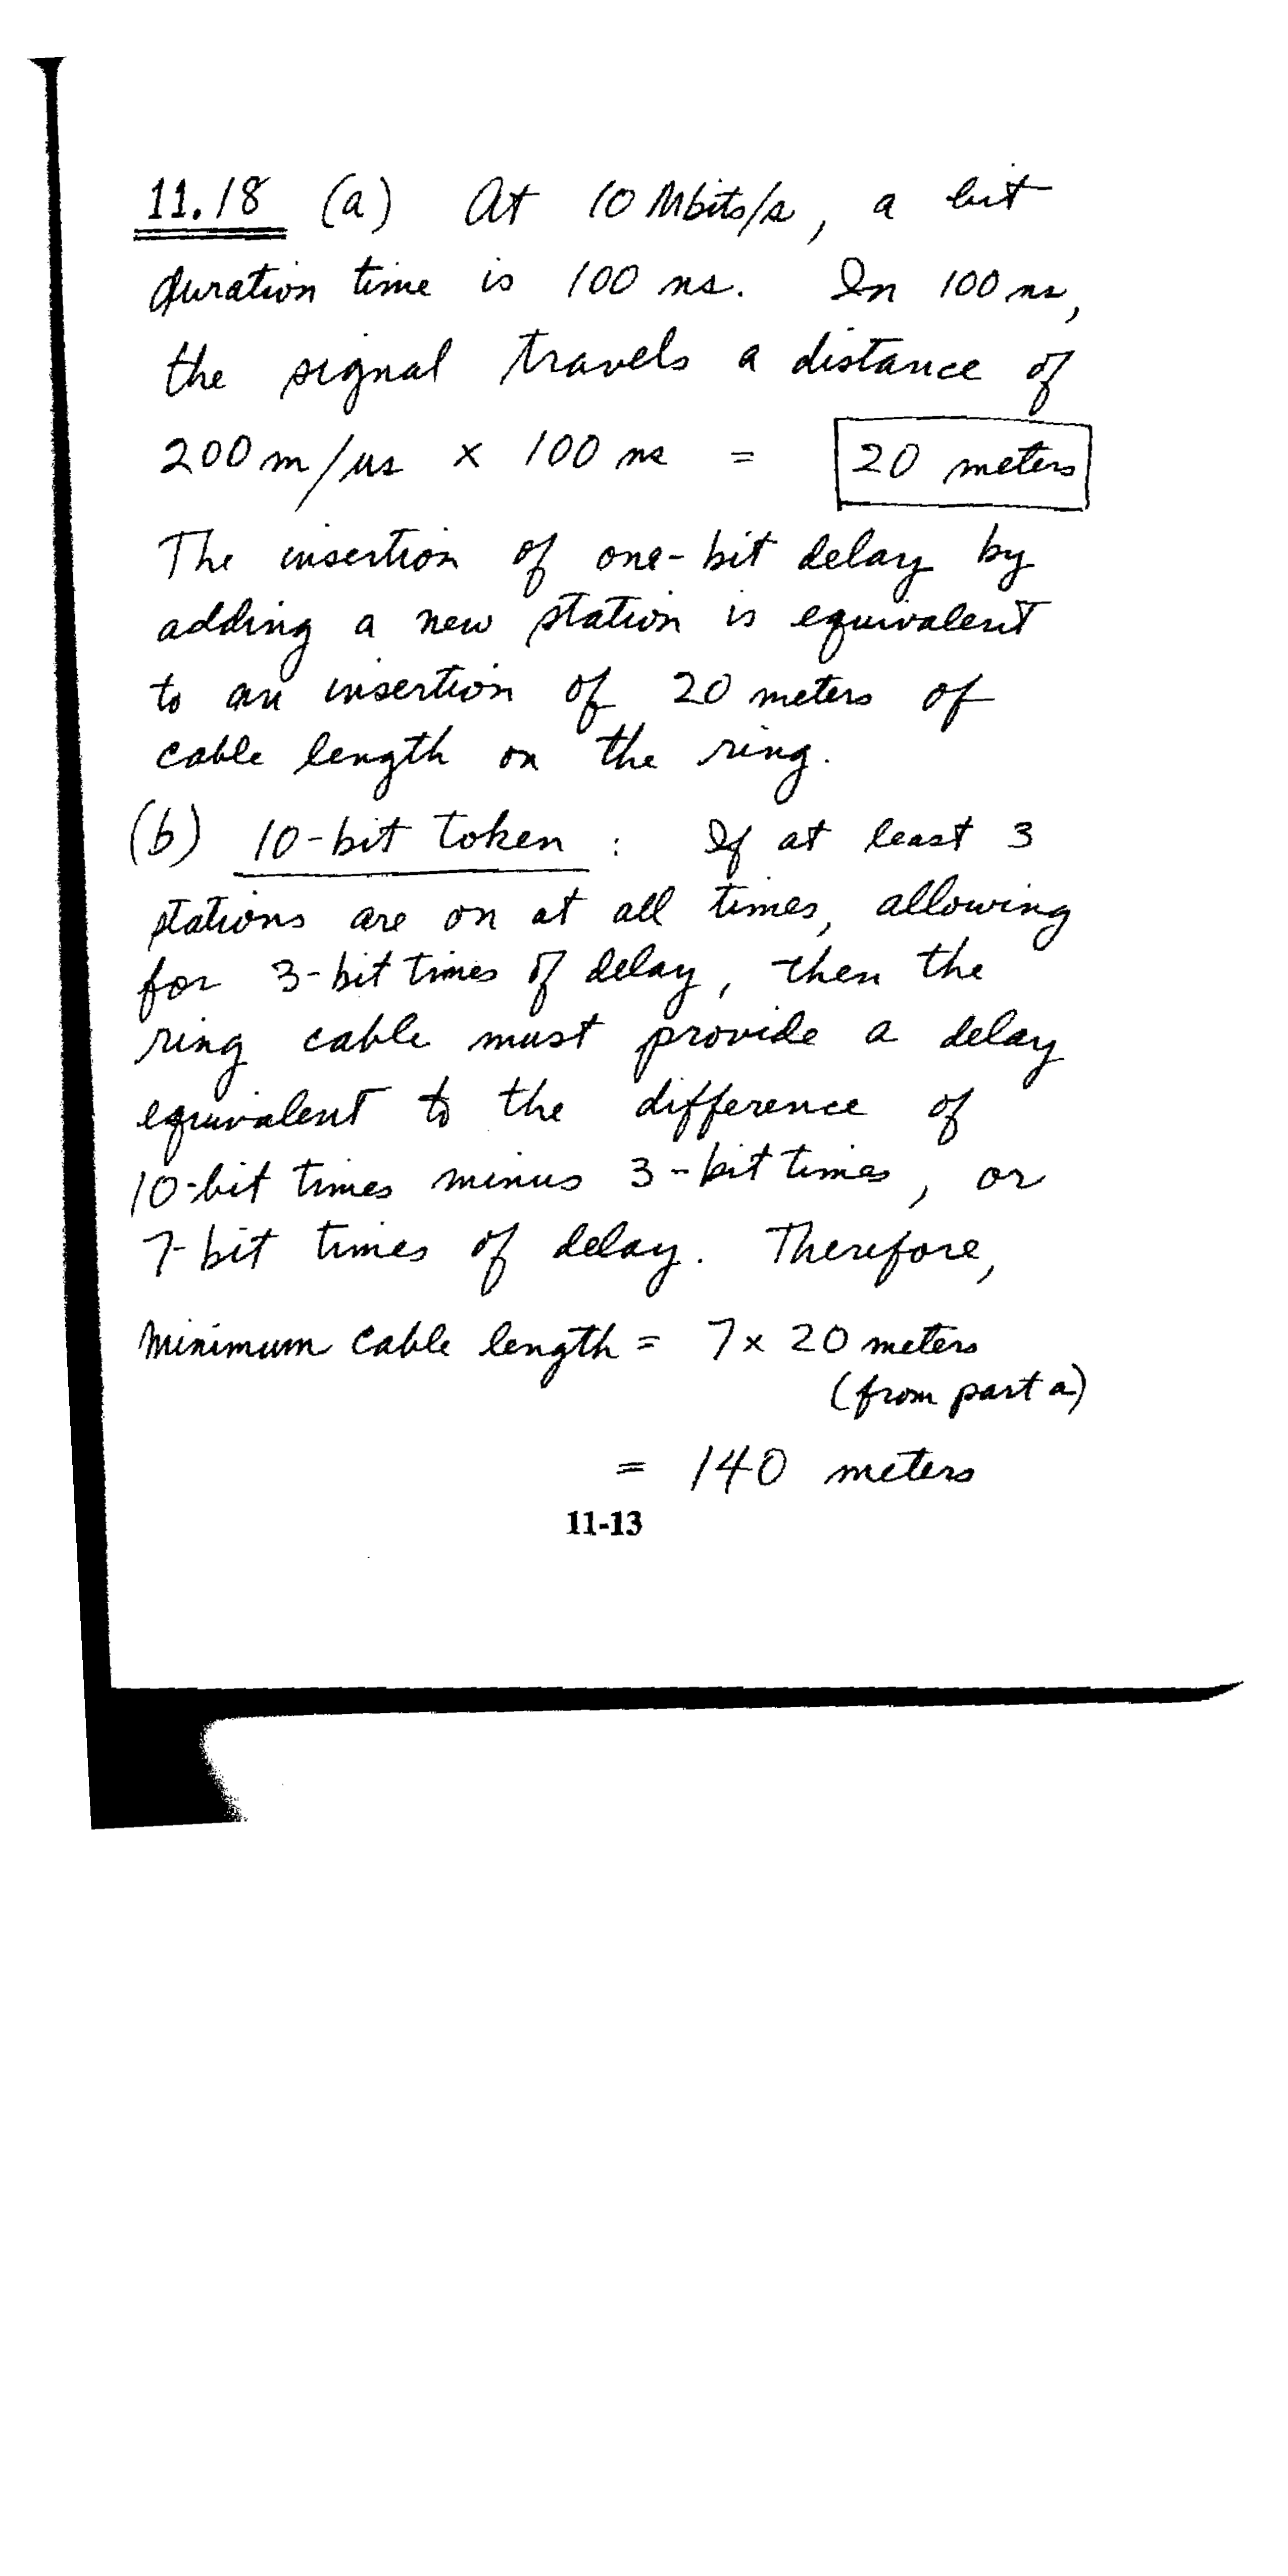 11.18 (a) At 10 Mbits/s, a bit
duration time is 100 ns. In 100 ns,
the signal travels a distance of
200 m/us × 100 ns = 20 meters
The insertion of one-bit delay by
adding a new station is equivalent
to an insertion of 20 meters of
cable length on the ring.
(b) 10-bit token : If at least 3
stations are on at all times, allowing
for 3-bit times of delay, then the
ring cable must provide a delay
equivalent to the difference of
10-bit times minus 3-bit times, or
7-bit times of delay. Therefore,
Minimum cable length = 7 × 20 meters
(from part a)
= 140 meters
11-13